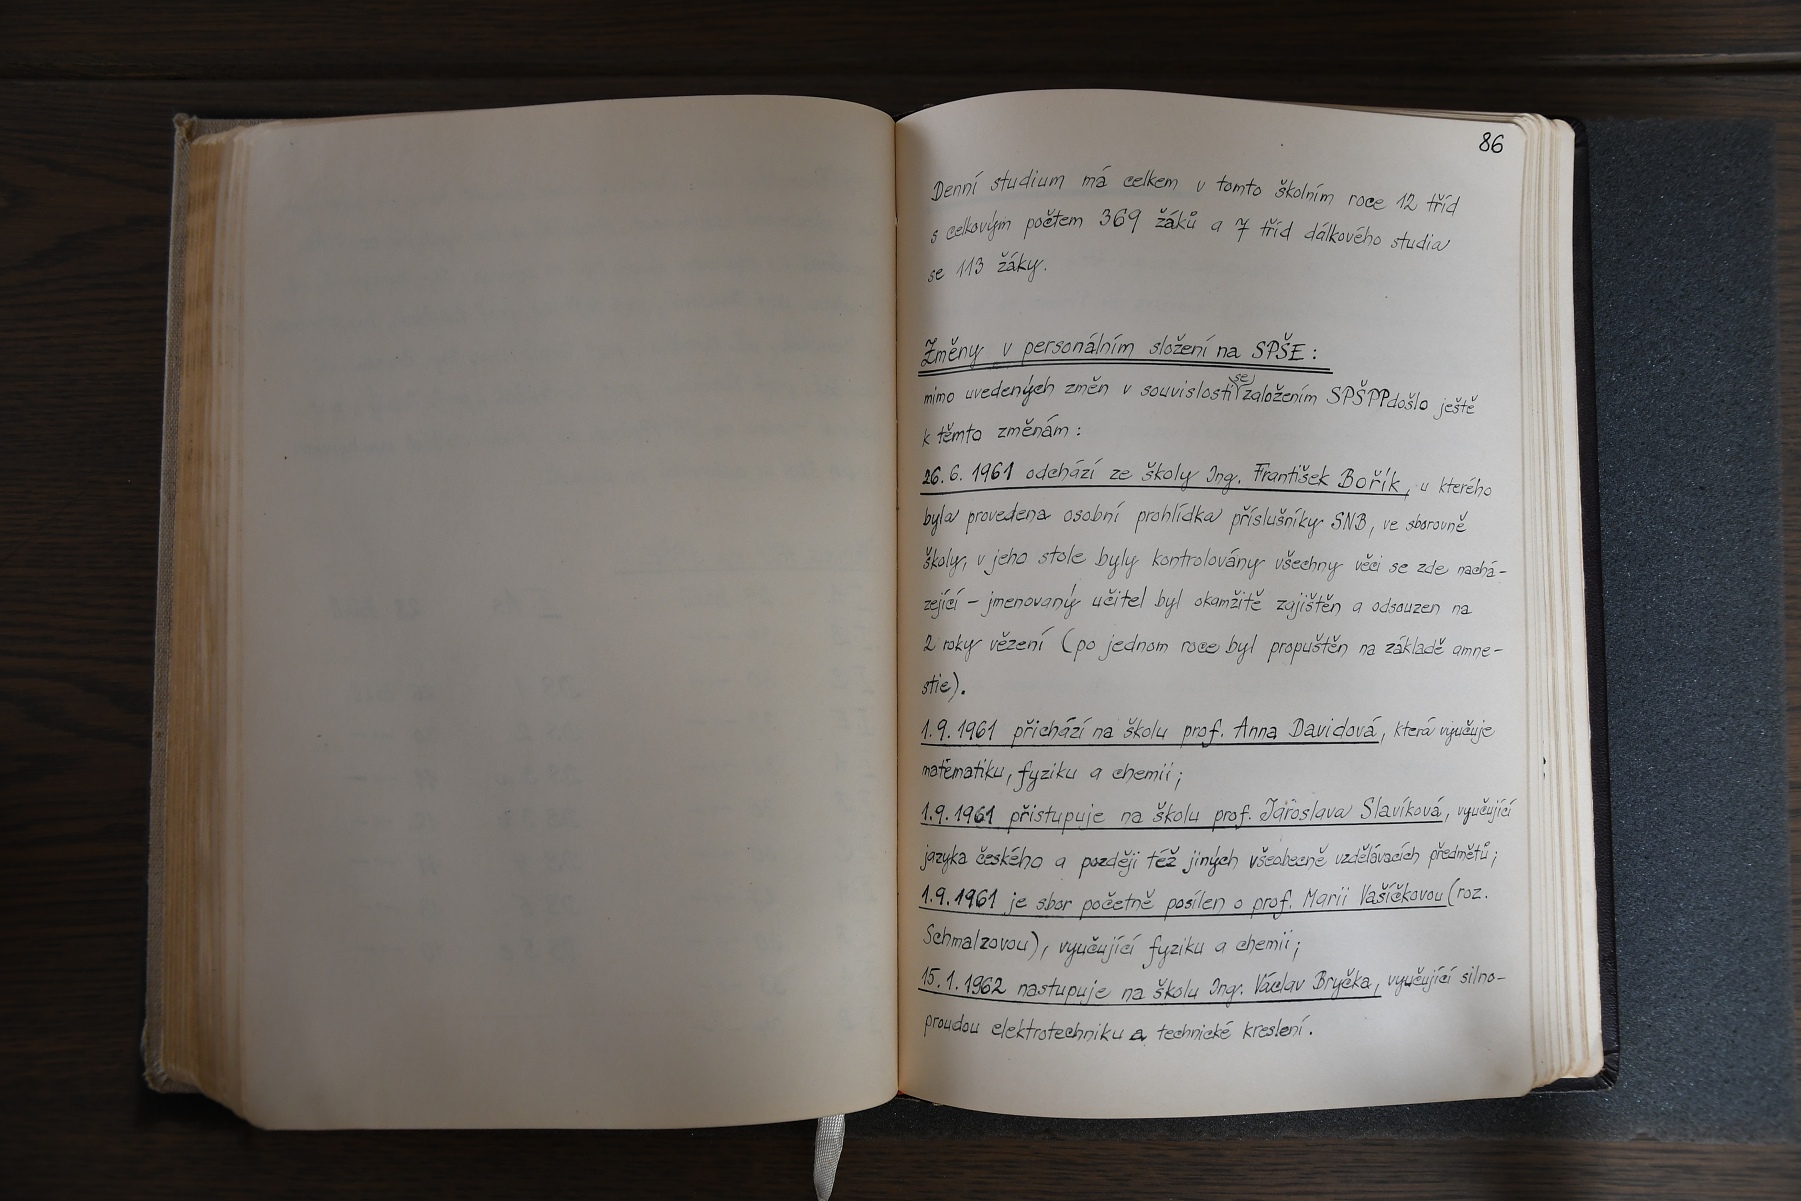 86
Denní studium má celkem v tomto školním roce 12 tříd
s celkovým počtem 369 žáků a 7 tříd dálkového studia
se 113 žáky.
Změny v personálním složení na SPŠE :
mimo uvedených změn v souvislosti se založením SPŠPP došlo ještě
k těmto změnám :
26. 6. 1961 odchází ze školy Ing. František Bořík, u kterého
byla provedena osobní prohlídka příslušníky SNB, ve sborovně
školy, v jeho stole byly kontrolovány všechny věci se zde nachá-
zející – jmenovaný učitel byl okamžitě zajištěn a odsouzen na
2 roky vězení (po jednom roce byl propuštěn na základě amne-
stie).
1. 9. 1961 přichází na školu prof. Anna Davidová, která vyučuje
matematiku, fyziku a chemii ;
1. 9. 1961 přistupuje na školu prof. Jaroslava Slavíková, vyučující
jazyka českého a později též jiných všeobecně vzdělávacích předmětů ;
1. 9. 1961 je sbor početně posílen o prof. Marii Vašíčkovou (roz.
Schmalzovou), vyučující fyziku a chemii ;
15. 1. 1962 nastupuje na školu Ing. Václav Bryčka, vyučující silno-
proudou elektrotechniku a technické kreslení.